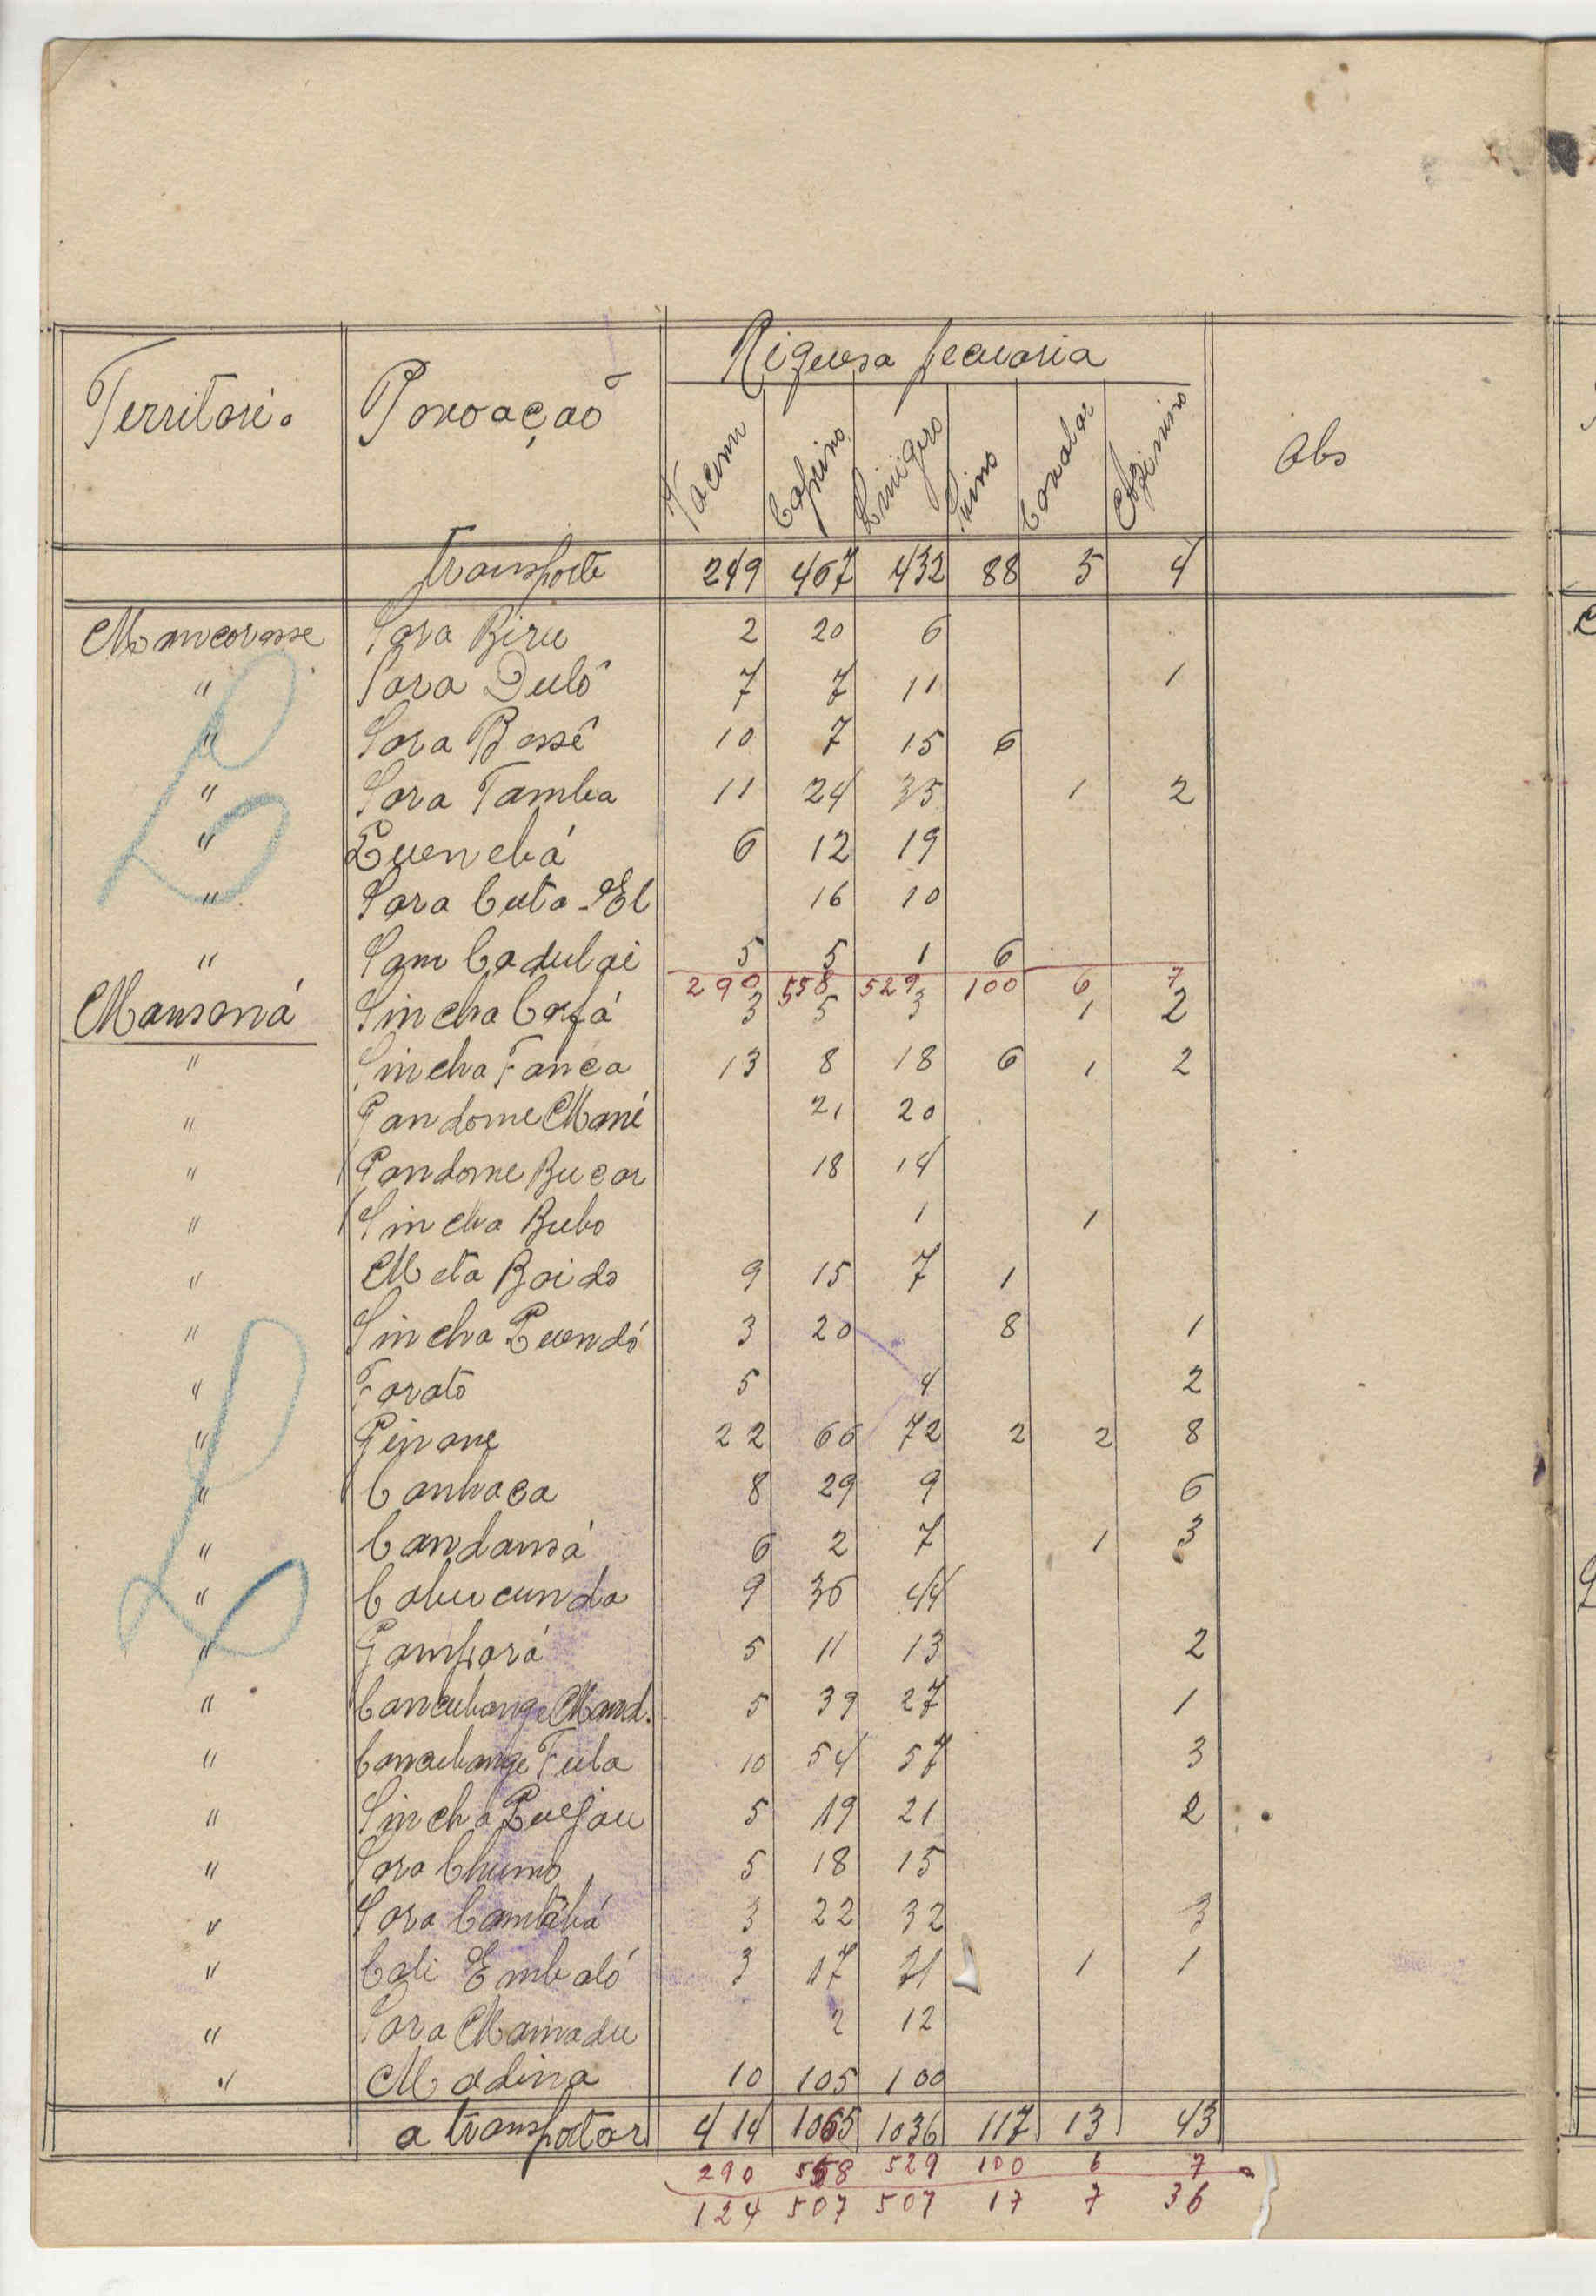 Riquesa pecuaria
Territorio Povoação Vacum Caprino Lanigero Suino Cavalar Azinino Obs
Transporte 249 467 432 88 5 4
Mancorosse Sara Biru 2 20 6
" Sara Duló 7 7 11 1
" Sara Bossé 10 7 15 6
" Sara Tamba 11 24 35 1 2
" Quenebá 6 12 19
" Sara Cuta-El 16 10
" Sam Cadulai 5 5 1 6
290 558 529 100 6 7
Mansoná Sincha Cafá 3 5 3 1 2
" Sincha Fanca 13 8 18 6 1 2
" Gandome Mané 21 20
" Gandome Bucar 18 14
" Sincha Bubo 1 1
" Meta Baido 9 15 7 1
" Sincha Quendó 3 20 8 1
" Farato 5 4 2
" Genane 22 66 72 2 2 8
" Canhaca 8 29 9 6
" Candansá 6 2 7 1 3
" Cabucunda 9 36 44
" Gampará 5 11 13 2
" Cancubange Mand. 5 39 27 1
" Cancubange Fula 10 54 57 3
" Sincha Quejau 5 19 21 2
" Sara Chumo 5 18 15
" Sara Cantabá 3 22 32 3
" Cali Embaló 3 17 31 1 1
" Sara Mamadu 2 12
" Madina 10 105 100
a transportar 414 1065 1036 117 13 43
290 558 529 100 6 7
124 507 507 17 7 36